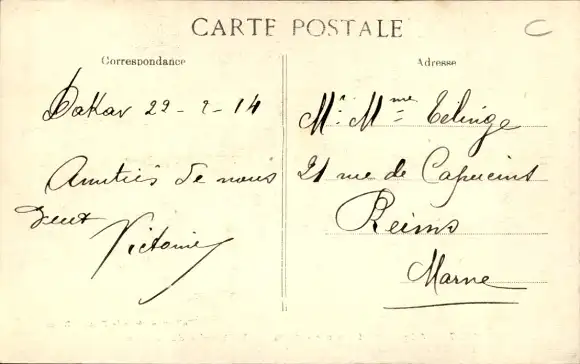 CARTE POSTALE
C
Correspondance
Adresse
Dakar 22-2-14
Amitiés de nous
deux
Victoire
Mr. Mme
21 rue de Capucins
Reims
Marne